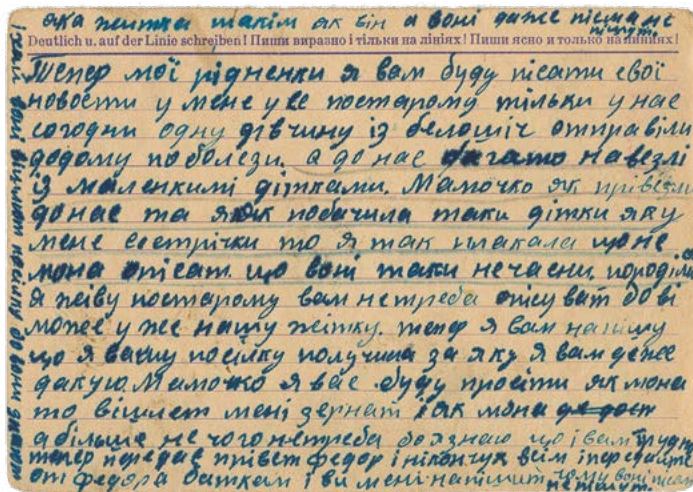 яка жітка таким як він а воні даже пісма не
пішут.
Deutlich u. auf der Linie schreiben! Пиши виразно і тільки на лініях! Пиши ясно и только на линиях!
Тепер мої рідненки я вам буду пісати свої
новости у мене у се постарому тільки у нас
согодни одну дівчину із белошіч отправіли
додому по болези. а до нас багато навезлі
із маленкимі дітками. Мамочко як прівезли
до нас та як побачила таки дітки як у
мене сестрічки то я так плакала що не
мона опісат. що воні таки нечасни.
я жіву постарому вам не треба опісуват бо ві
може у же нашу жітку. тепер я вам напішу
що я вашу посілку получила за яку я вам деже
дакую. Мамочко я вас буду просіти як мона
то вішлет мені зернат і як мона
а більше не чого нетреба бо я знаю що і вам трудно
тепер передає прівет федор і нікончук всім і передайте
от федора баткам і ві мені напішит чому воні пісем
не пішут.